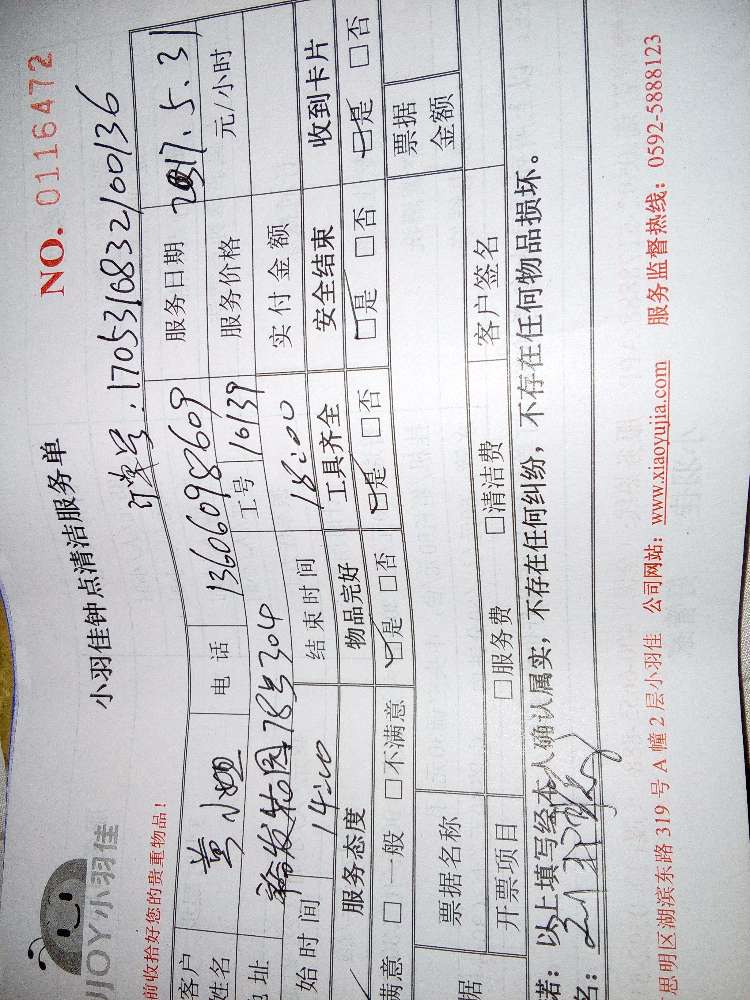 JOY小羽佳
小羽佳钟点清洁服务单
NO. 0116472
前收拾好您的贵重物品！
订单号：170531683210036
客户姓名 黄小姐 电话 13606098609 服务日期 2017.5.31
地址 78号304 工号 10139 服务价格 元/小时
始时间 14:00 结束时间 18:00 实付金额
服务态度 物品完好 工具齐全 安全结束 收到卡片
满意 □一般 □不满意 □是 □否 □是 □否 □是 □否 □是 □否
据 票据名称 票据金额
开票项目 □服务费 □清洁费 客户签名
若：以上填写经本人确认属实，不存在任何纠纷，不存在任何物品损坏。
名：
思明区湖滨东路319号A幢2层小羽佳 公司网站：www.xiaoyujia.com 服务监督热线：0592-5888123